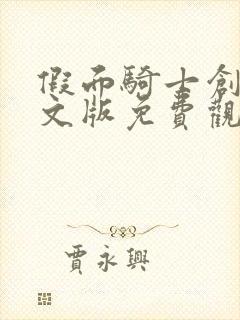 假面騎士創
文版免費觀
賈永興